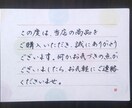 この度は、当店の商品を
ご購入いただき、誠にありがとう
ございます。何かお気づきの点が
ございましたら、お気軽にご連絡
くださいませ。